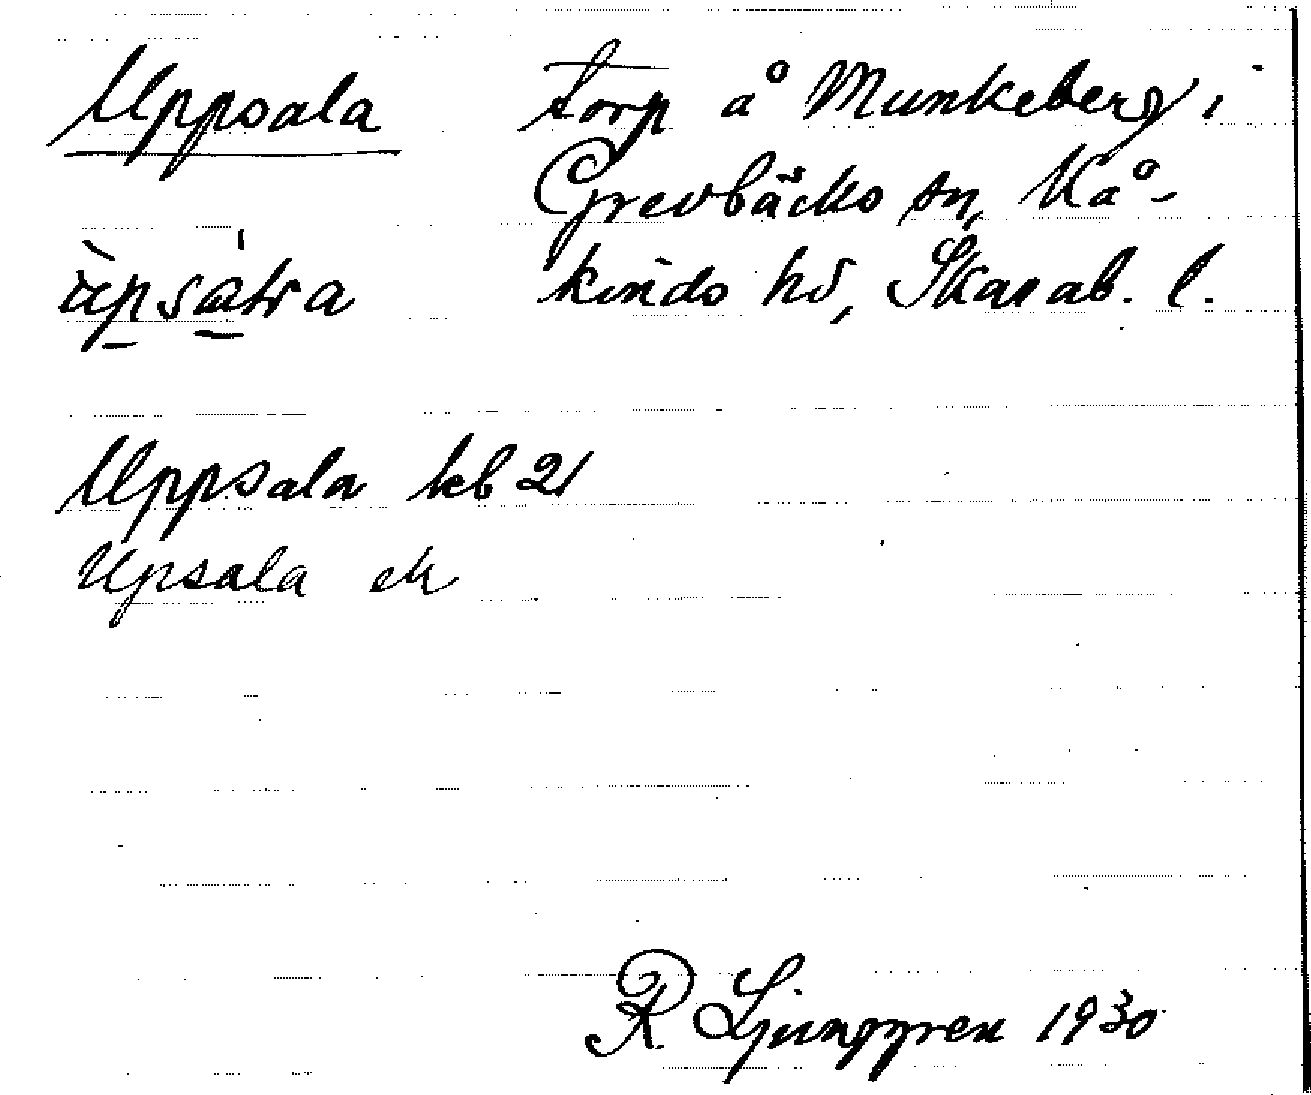 Uppsala torp å Munkeberg i
Grevbäcks sn, Kå-
kinds hd, Skarab. l.
Uppsala kb 21
Upsala ek
R Ljunggren 1930